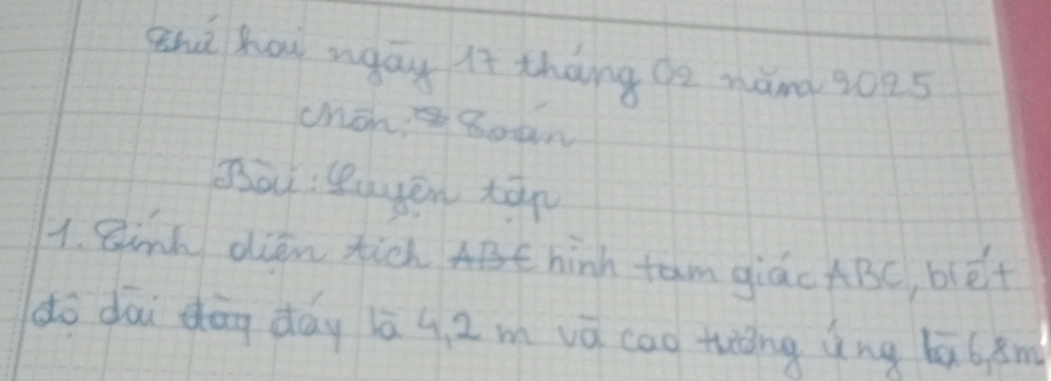 Thứ hai ngày 17 tháng 02 năm 2025
Môn: Toán
Bài: Luyện tập
1. Tính diện tích hình tam giác ABC, biết
độ dài đáy là 4,2 m và cao tương ứng là 6,8m